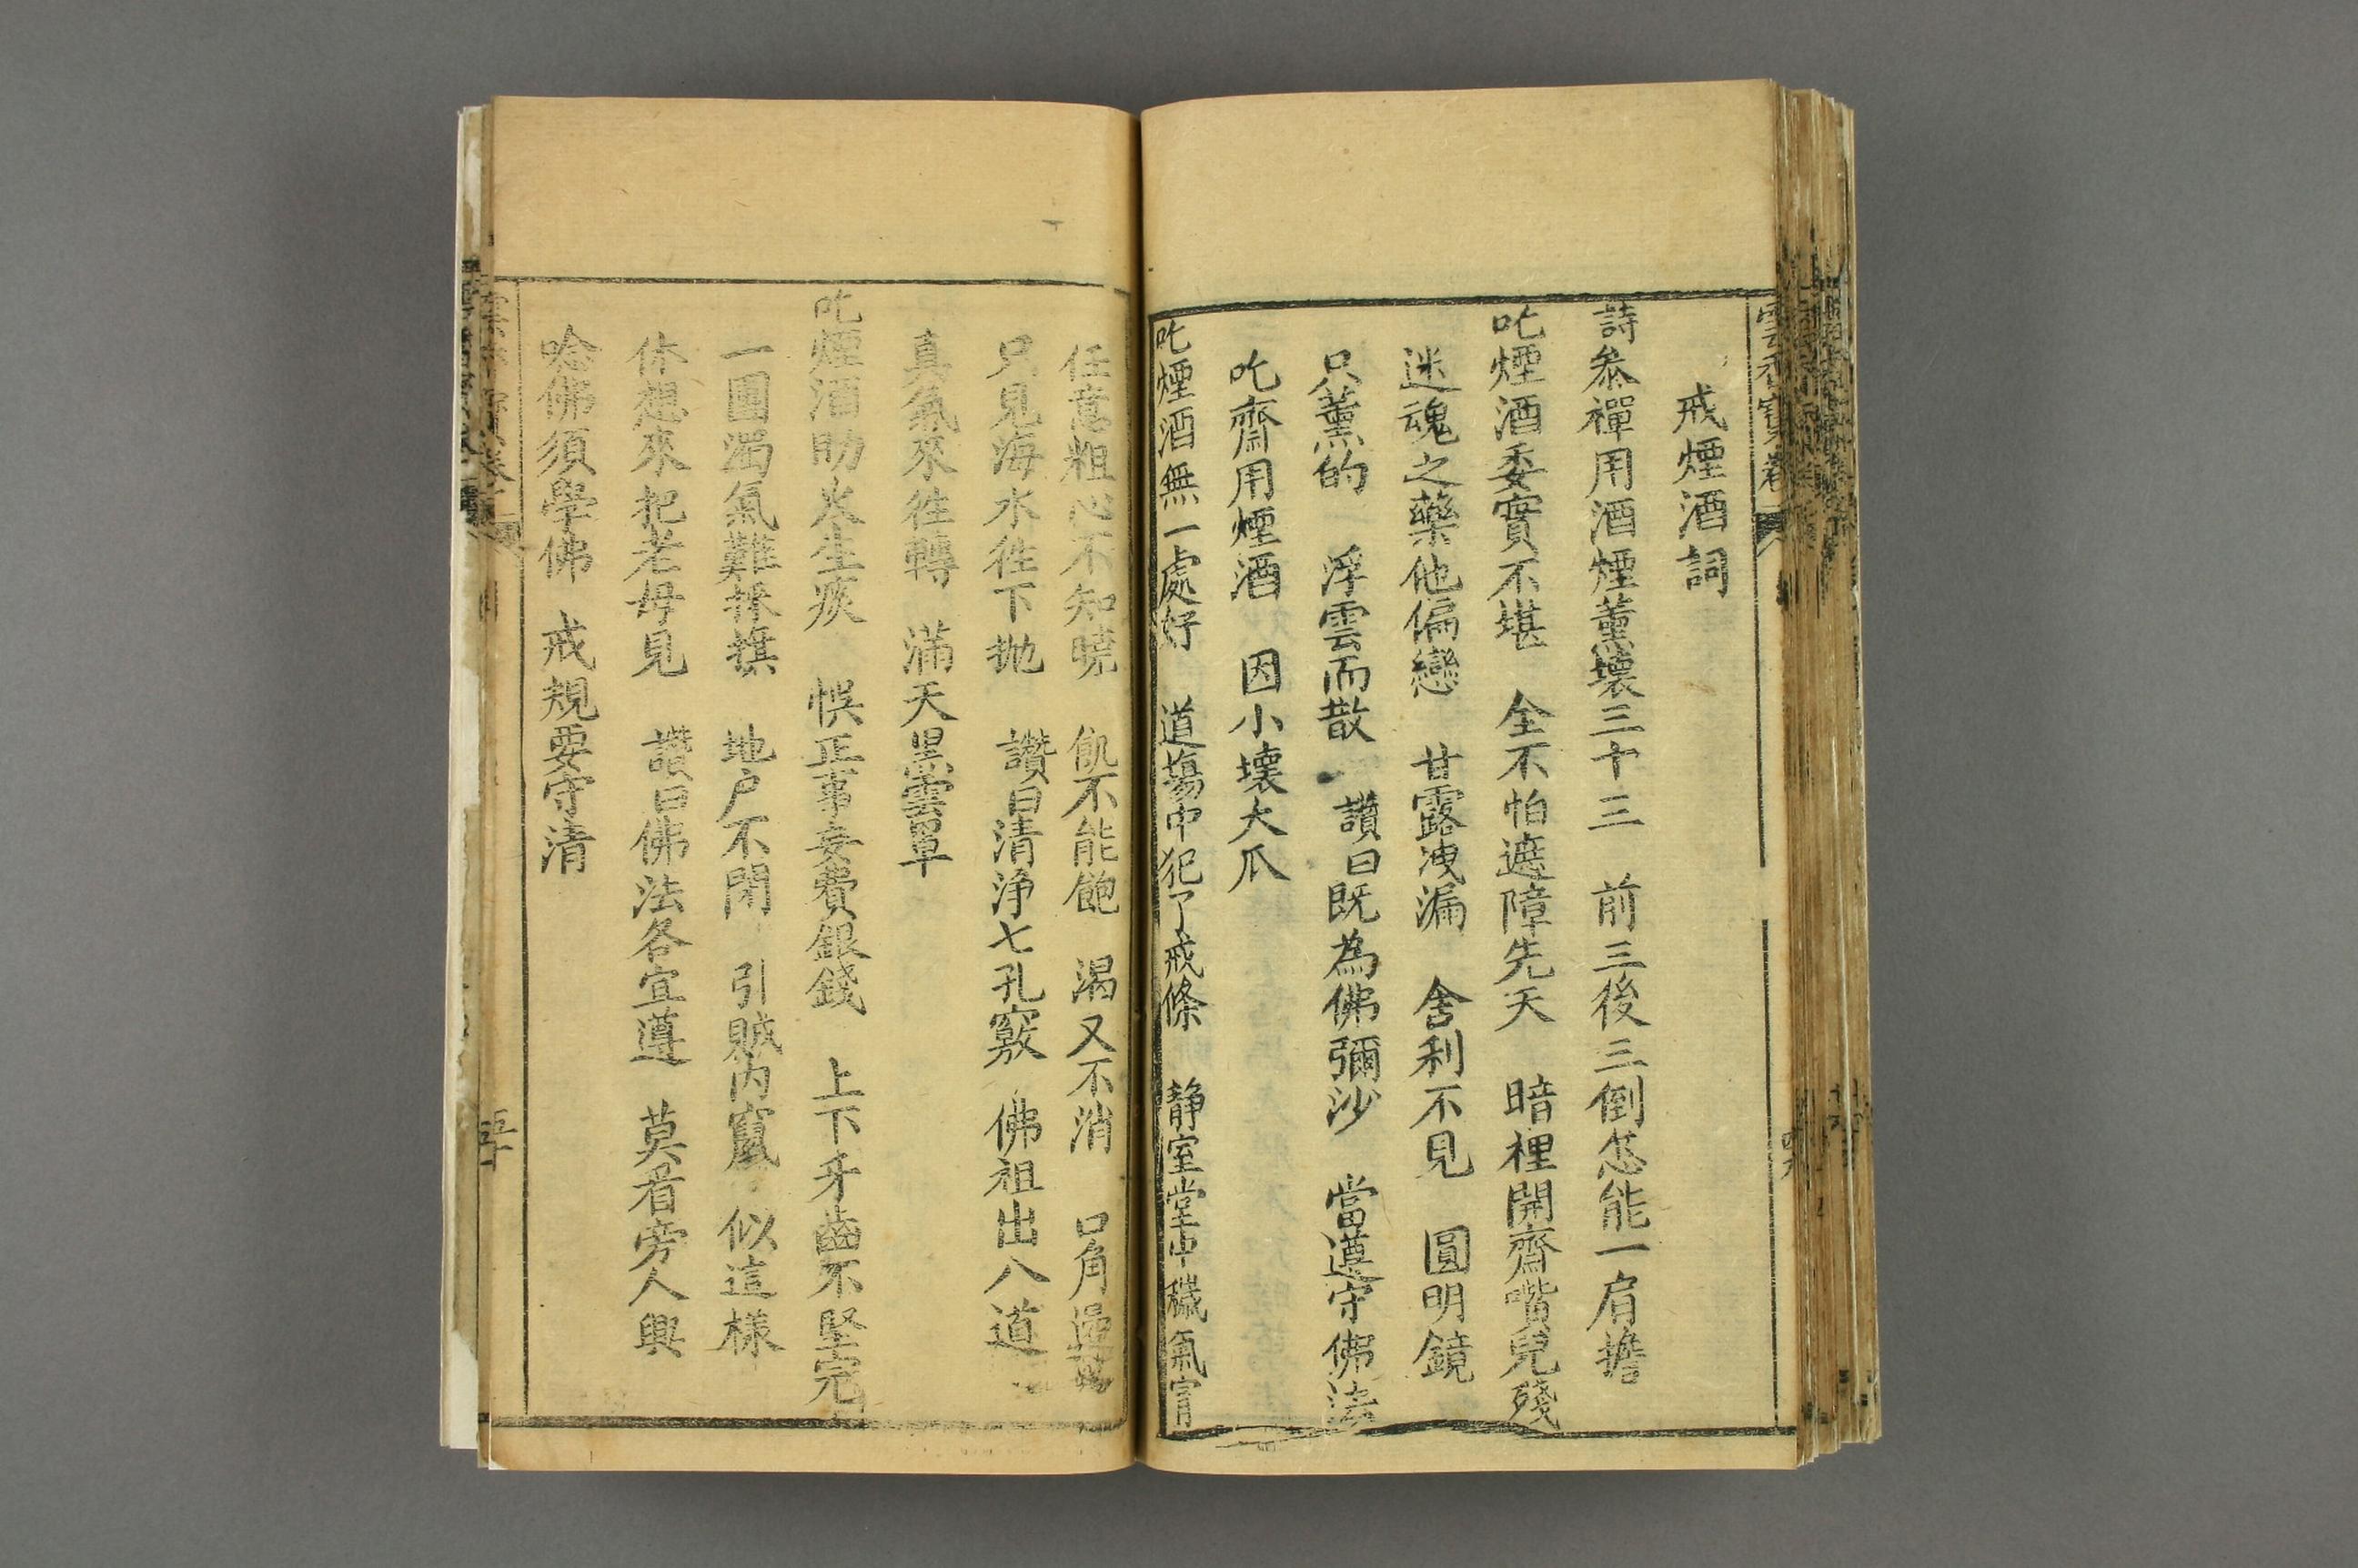 雲香寶卷
戒煙酒詞
詩叅禪用酒煙薰壞三十三 前三後三倒怎能一肩擔
吃煙酒委實不堪 全不怕遮障先天 暗裡開齋嘴兒殘
迷魂之藥他偏戀 甘露洩漏 舍利不見 圓明鏡
只薰的 浮雲而散 讚曰既為佛彌沙 當遵守佛法
吃齋用煙酒 因小壞大瓜
吃煙酒無一處好 道場中犯了戒條 靜室堂中穢氣宵
任意粗心不知曉 飢不能飽 渴又不消 口角邊
只見海水徃下抛 讚曰清淨七孔竅 佛祖出八道
真氣來徃轉 滿天黑雲罩
吃煙酒助火生痰 悞正事妄費銀錢 上下牙齒不堅完
一團濁氣難採摸 地户不閉 引賊內竄 似這樣
休想來把老母見 讚曰佛法各宜遵 莫看旁人興
唸佛須學佛 戒規要守清
五十